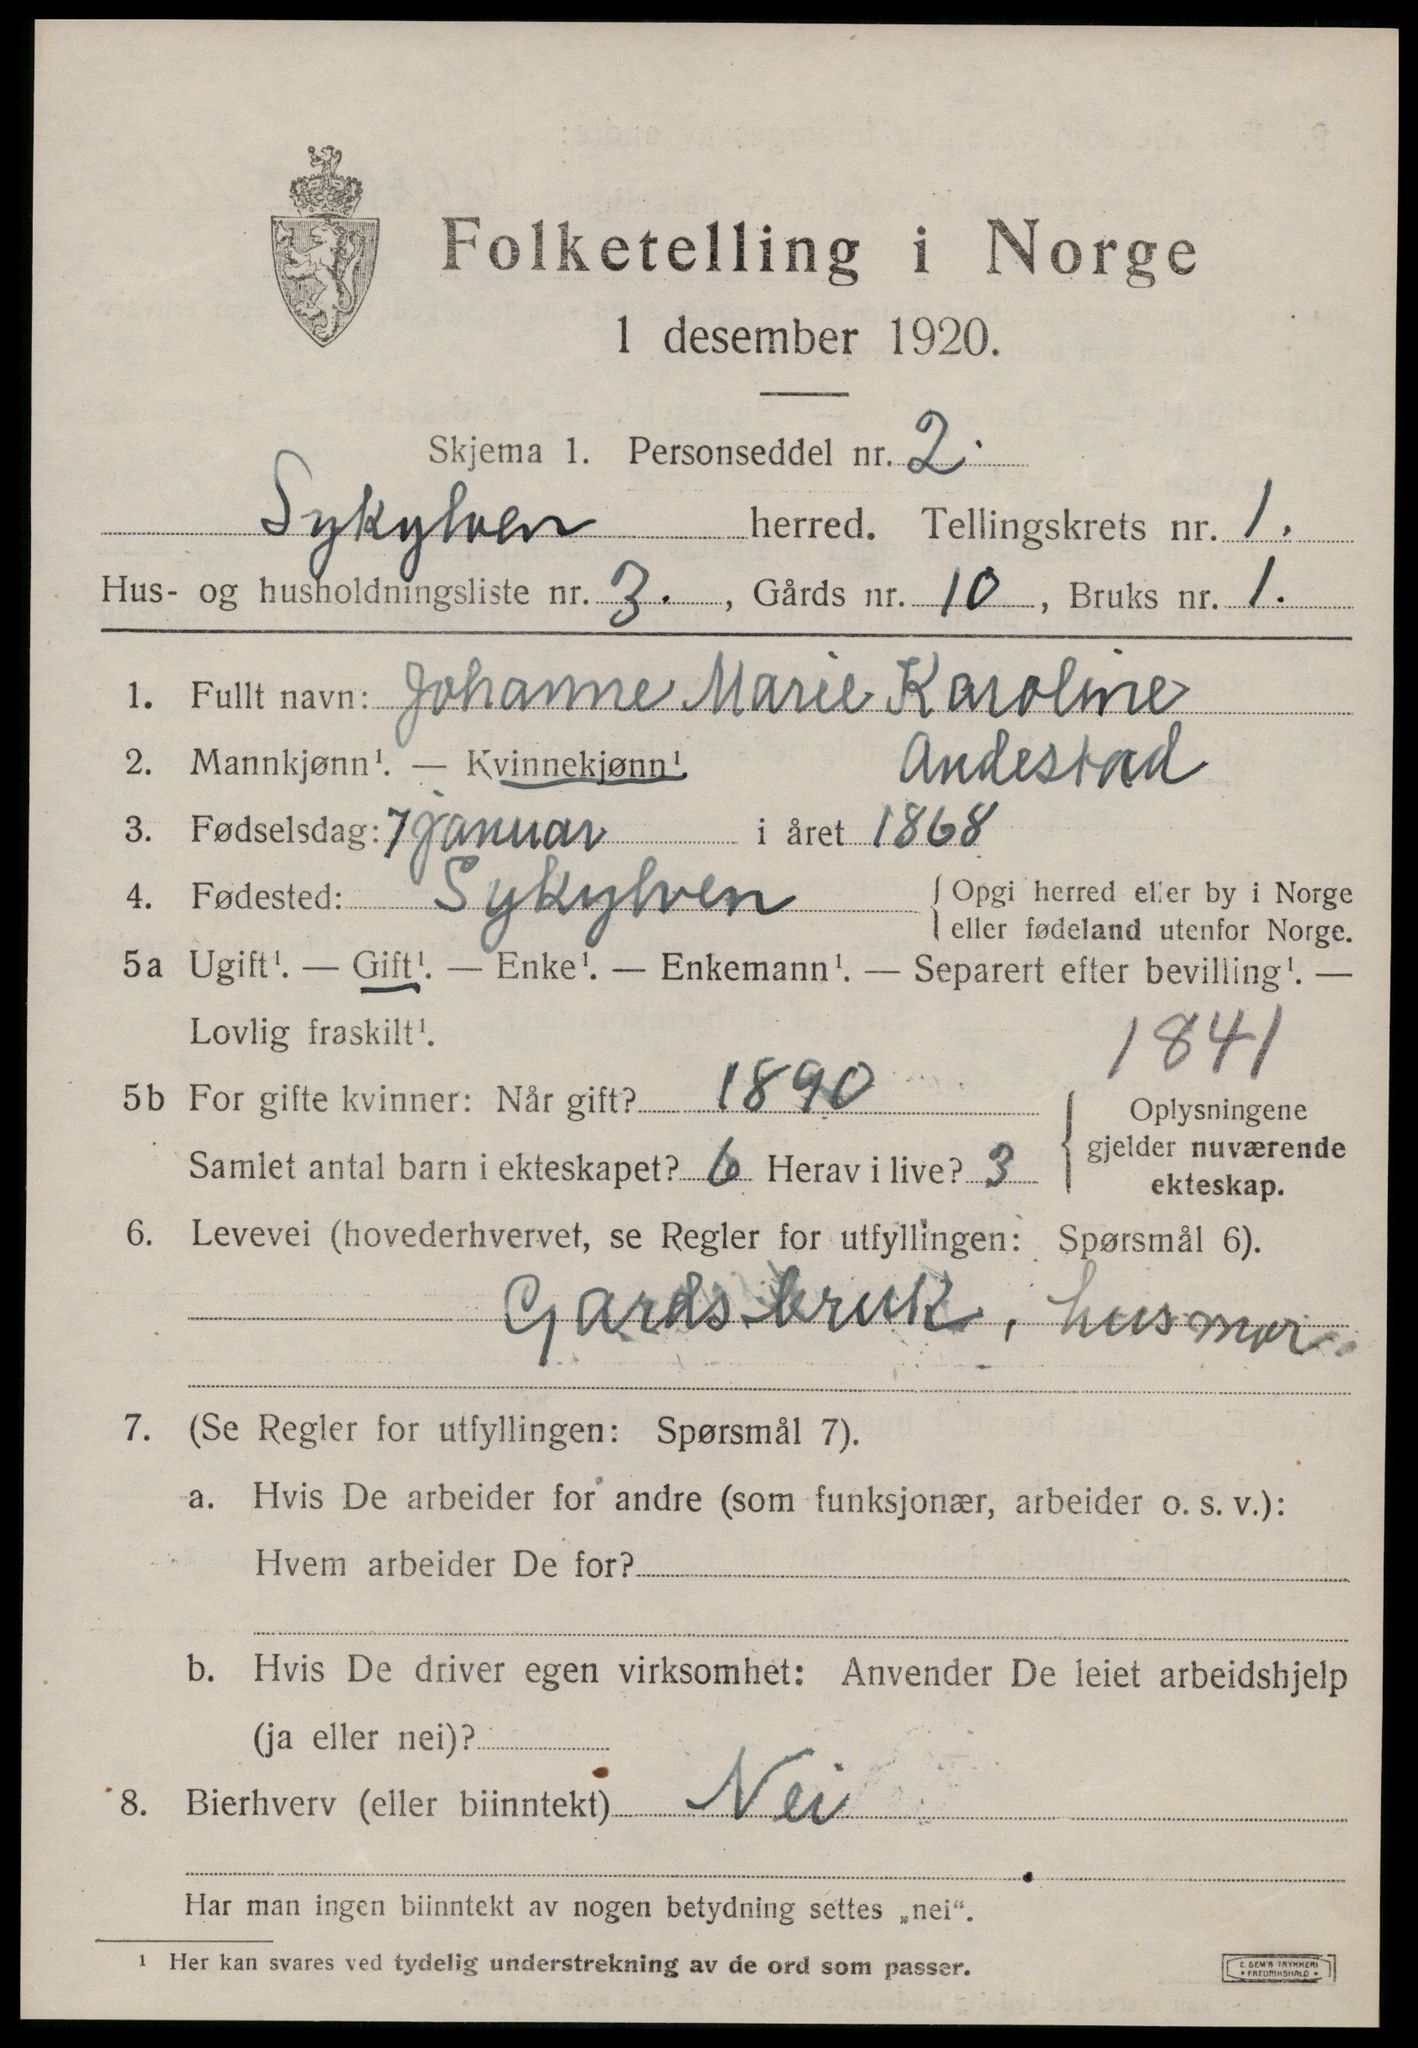 Folketelling i Norge
1 desember 1920.
Skjema 1. Personseddel nr. 2.
Sykylven herred. Tellingskrets nr. 1.
Hus- og husholdningsliste nr. 3. , Gårds nr. 10 , Bruks nr. 1.
1. Fullt navn: Johanne Marie Karoline
2. Mannkjønn¹. — Kvinnekjønn¹. Andestad
3. Fødselsdag: 7 januar i året 1868
4. Fødested: Sykylven { Opgi herred eller by i Norge
eller fødeland utenfor Norge.
5a Ugift¹. — Gift¹. — Enke¹. — Enkemann¹. — Separert efter bevilling¹. —
Lovlig fraskilt¹. 1841
5b For gifte kvinner: Når gift? 1890
Samlet antal barn i ekteskapet? 6 Herav i live? 3
{ Oplysningene
gjelder nuværende
ekteskap.
6. Levevei (hovederhvervet, se Regler for utfyllingen: Spørsmål 6).
Gardsbruk, husmor
7. (Se Regler for utfyllingen: Spørsmål 7).
a. Hvis De arbeider for andre (som funksjonær, arbeider o. s. v.):
Hvem arbeider De for?
b. Hvis De driver egen virksomhet: Anvender De leiet arbeidshjelp
(ja eller nei)?
8. Bierhverv (eller biinntekt) Nei
Har man ingen biinntekt av nogen betydning settes „nei“.
¹ Her kan svares ved tydelig understrekning av de ord som passer.
E. SEM'S TRYKKERI
• FREDRIKSHALD •